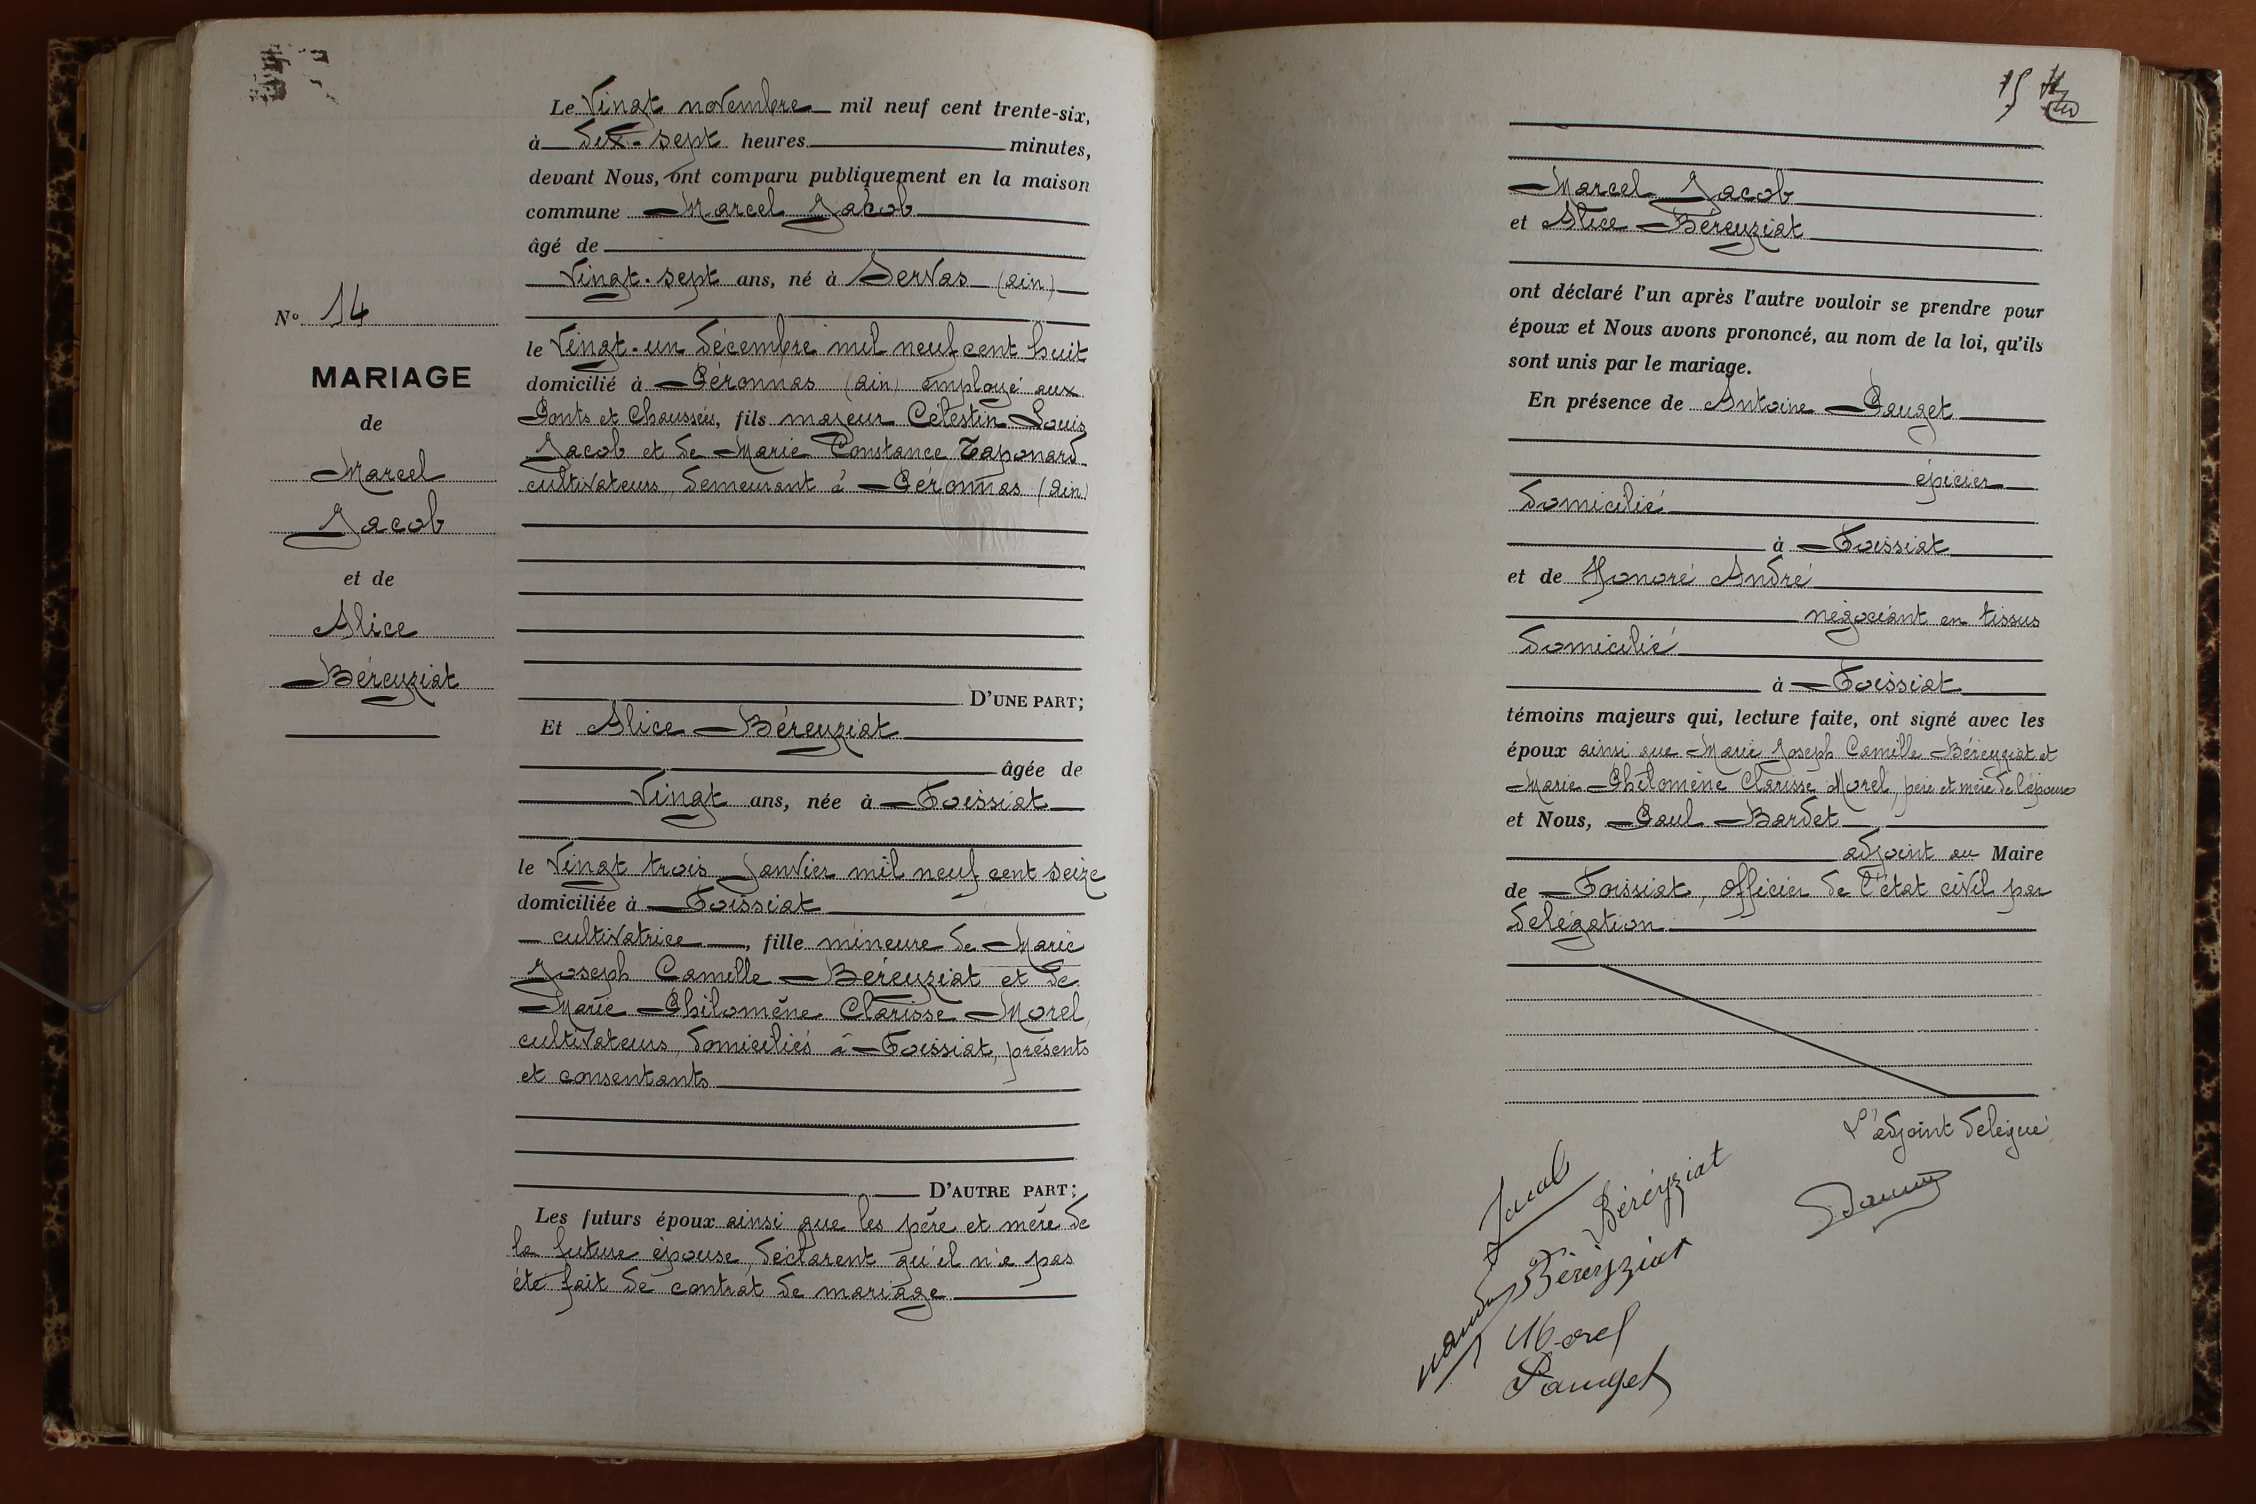 Le Vingt novembre mil neuf cent trente-six,
à dix-sept heures minutes,
devant Nous, ont comparu publiquement en la maison
commune Marcel Jacob
âgé de
Vingt-sept ans, né à Servas (ain)
le Vingt-un décembre mil neuf cent huit
domicilié à Péronnas (ain) employé aux
Ponts et Chaussées, fils majeur Célestin Louis
Jacob et de Marie Constance Taponard
cultivateurs, demeurant à Péronnas (ain)
D'UNE PART;
Et Alice Béreyziat
âgée de
Vingt ans, née à Foissiat
le Vingt trois Janvier mil neuf cent seize
domiciliée à Foissiat
cultivatrice, fille mineure de Marie
Joseph Camille Béreyziat et de
Marie Philomène Clarisse Morel,
cultivateurs, domiciliés à Foissiat, présents
et consentants
D'AUTRE PART;
Les futurs époux ainsi que les père et mère de
la future épouse, déclarent qu'il n'a pas
été fait de contrat de mariage
N° 14
MARIAGE
de
Marcel
Jacob
et de
Alice
Béreyziat
15
Marcel Jacob
et Alice Béreyziat
ont déclaré l'un après l'autre vouloir se prendre pour
époux et Nous avons prononcé, au nom de la loi, qu'ils
sont unis par le mariage.
En présence de Antoine Pauget
épicier
domicilié
à Foissiat
et de Honoré André
négociant en tissus
domicilié
à Foissiat
témoins majeurs qui, lecture faite, ont signé avec les
époux ainsi que Marie Joseph Camille Béreyziat et
Marie Philomène Clarisse Morel, père et mère de l'épouse
et Nous, Paul Bardet
adjoint au Maire
de Foissiat, officier de l'état civil par
délégation
L'adjoint délégué
Jacob
Béréyziat
Béréyziat
Morel
Pauget